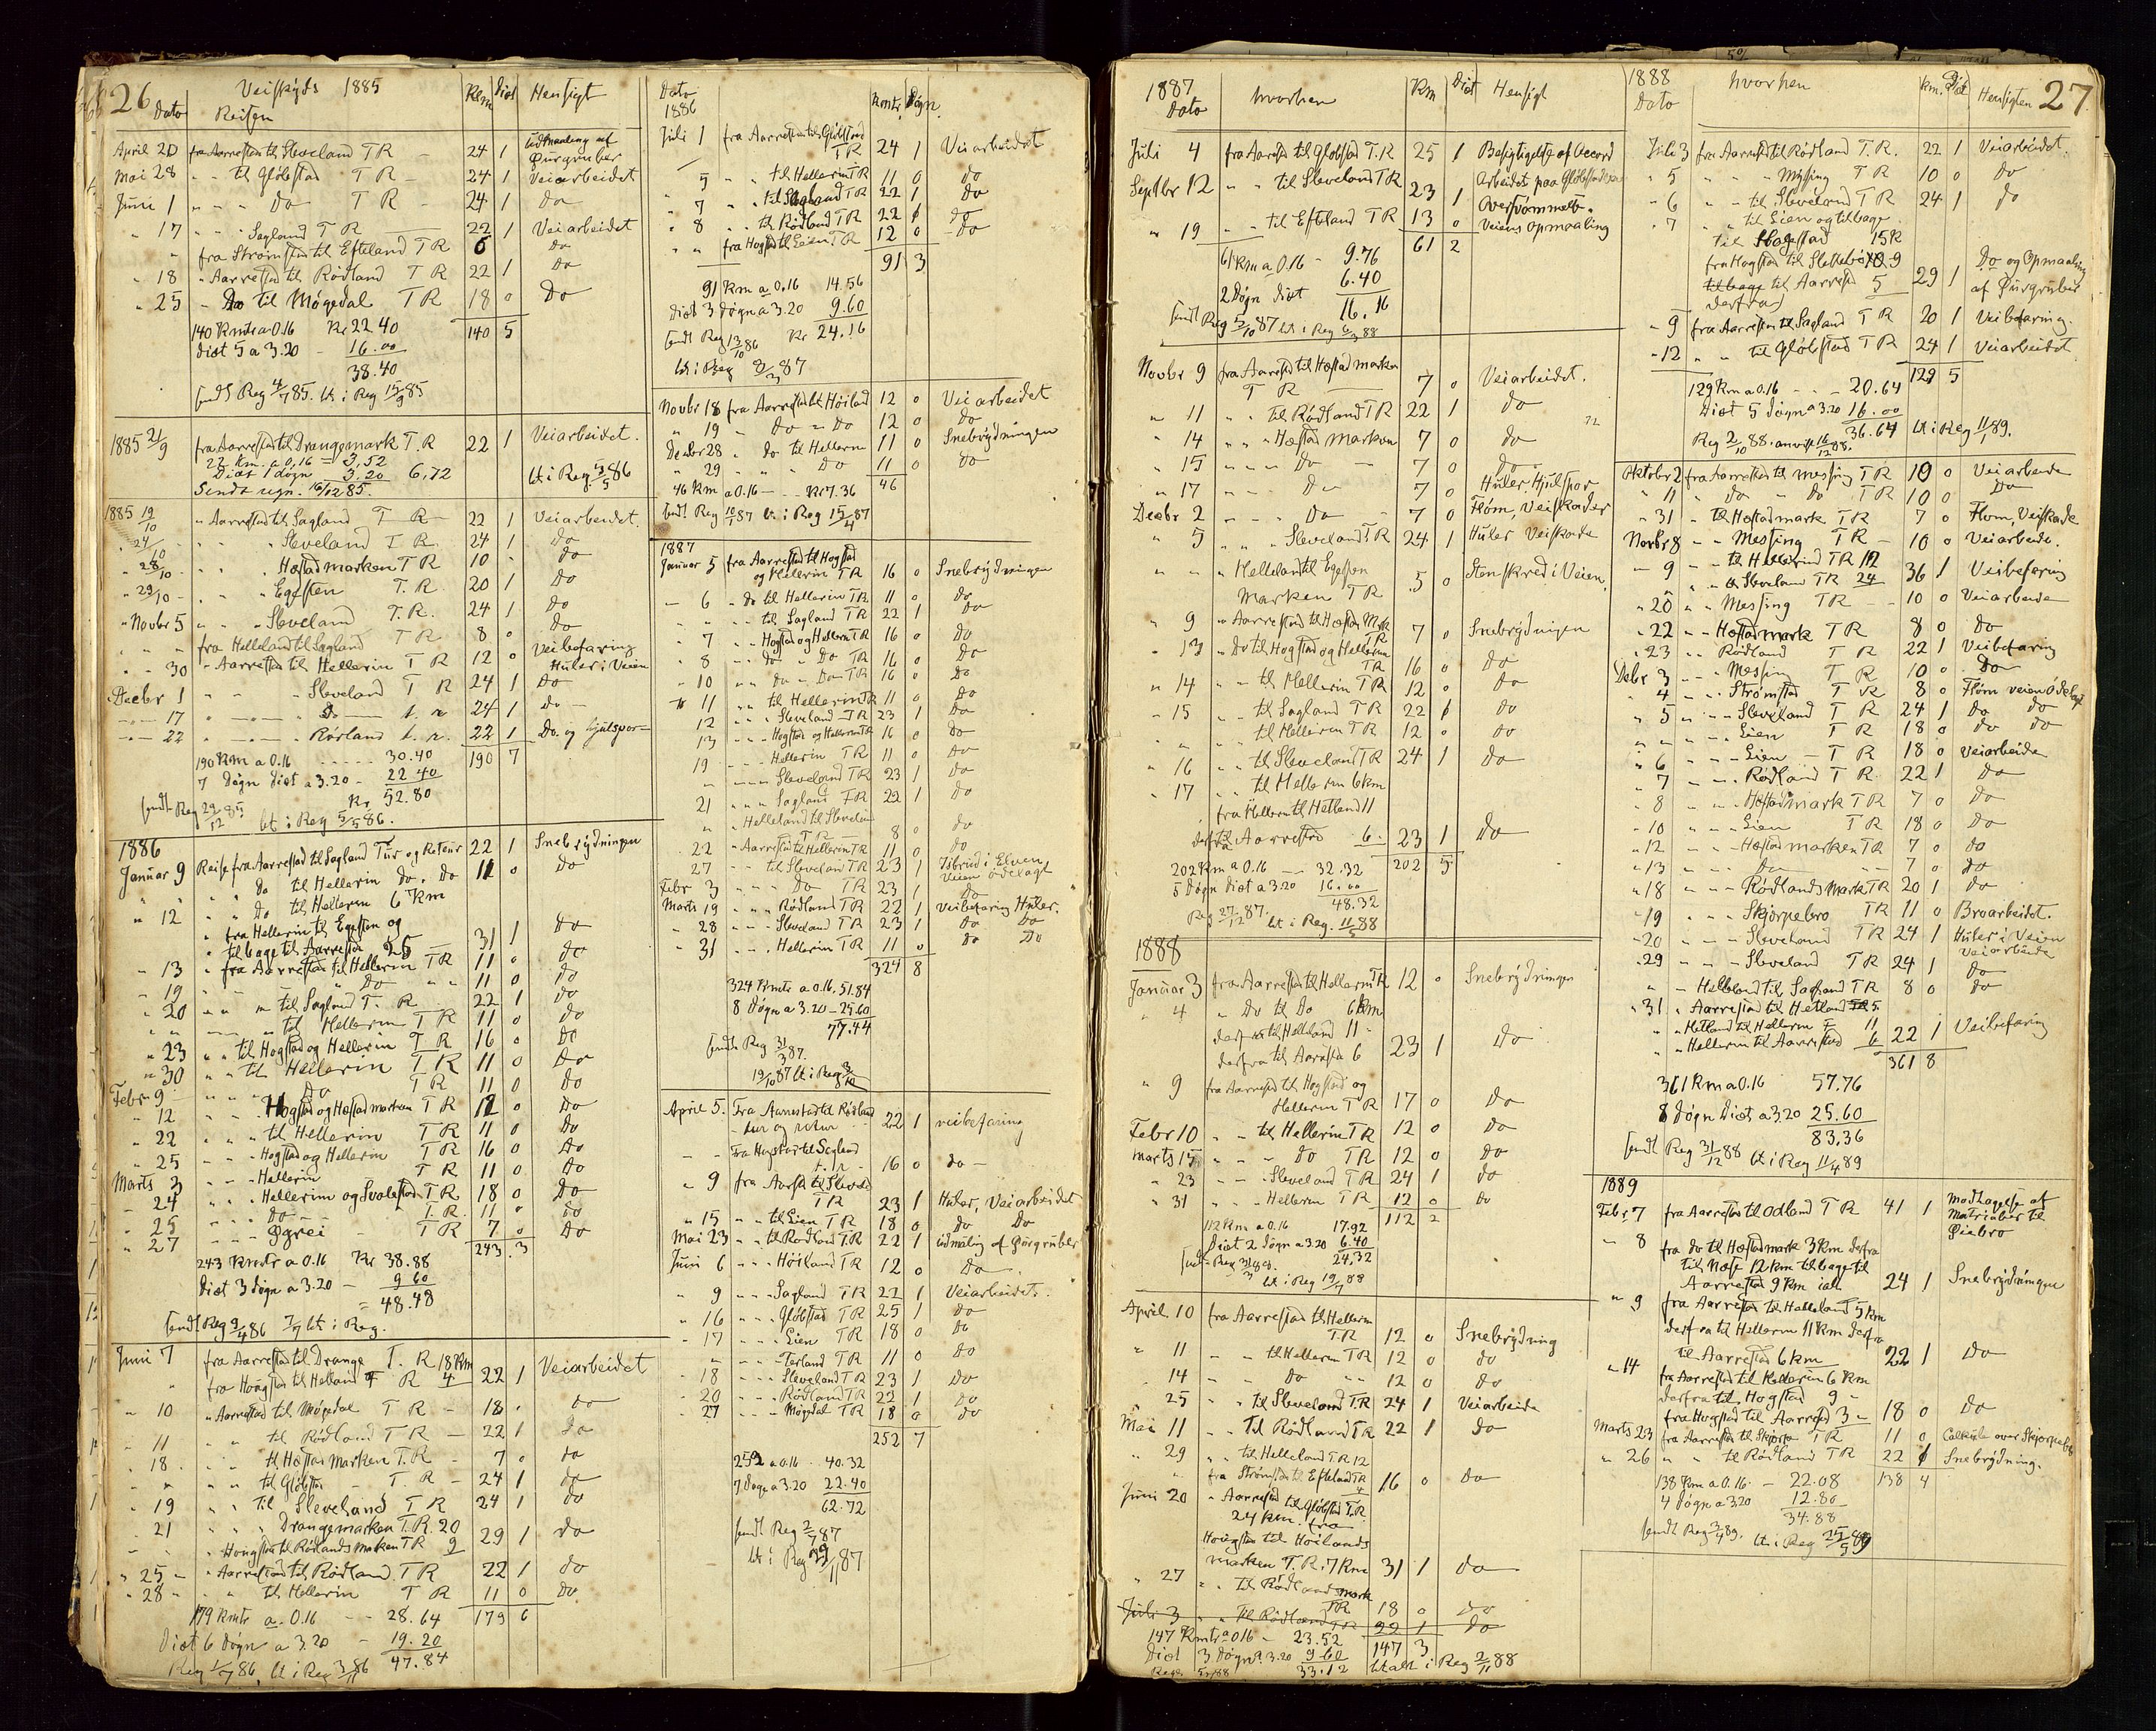 26 Veiskyds 1885
Dato Reisen Klm Diæt Hensigt
April 20 fra Aarrestad til Sleveland T R - 24 1 Udmaaling af Ørrgruber
Mai 28 " " til Gløbstad T R - 24 1 Veiarbeidet
Juni 1 " " " Do T R - 24 1 Do
" 17 " " " Sagland T R 22 1 Veiarbeidet
" fra Strømstad til Efteland T R 6 Do
" 18 " Aarrestad til Rødland T R 22 1 Do
" 25 " Do til Møgedal T R 18 0 Do
140 Kmtr a 0.16 Kr 22 40 140 5
Diæt 5 a 3.20 - 16.00
38.40
sendt Reg 4/7 85. bt i Reg 15/9 85
1885 21/9 fra Aarrestad til Drangemark T.R 22 1 Veiarbeidet.
22 Km. a 0,16 = 3.52
Diæt 1 døgn 3.20 6,72 bt i Reg. 5/5 86
Sendt regn. 16/12 85.
1885 19/10 " Aarrestad til Sagland T R 22 1 Veiarbeidet.
" 24/10 " " " Sleveland T R 24 1 Do
" 28/10 " " " Hæstadmarken T R 10 - Do
" 29/10 " " " Egesten T.R 20 1 Do
" Novbr 5 " " " Sleveland T.R. 24 1 Do
" " fra Helleland til Sagland T R 8 0 Do
" 30 " Aarrestad til Hellerin T R 12 0 Veibefaring Huler i Veien
Decbr 1 " " " Sleveland T R 24 1 Do
" 17 " " Do t. r. 24 1 Do
" 22 " " Rødland t. r. 22 1 Do. og hjulspor
190 Km a 0.16 30.40 190 7
7 Døgn Diæt a 3.20 - 22 40
Kr. 52.80
sendt Reg 29/12 85 bt i Reg 5/5 86.
1886
Januar 9 Reise fra Aarrestad til Sagland Tur og Retour 22 1 Snebrydningen
" " Do til Hellerin Do. Do 11 0 Do
" 12 " Do til Hellerin 6 Km
" fra Hellerin til Egesten og
" tilbage til Aarrestad 25 31 1 Do
" 13 " fra Aarrestad til Hellerin T R 11 0 Do
" 19 " " " Do " " 11 0 Do
" 20 " " til Sagland T. R 22 1 Do
" " " til Hellerin T R 11 0 Do
" 23 " " til Hogstad og Hellerin T R 16 0 Do
" 30 " " til Hellerin T R 11 0 Do
Febr 9 " " " Do T R 11 0 Do
" 12 " " " Hogstad og Hæstadmarken T R 12 0 Do
" 22 " " " til Hellerin T R 11 0 Do
" 25 " " " Hogstad og Hellerin T R 16 0 Do
Marts 3 " " " Hellerin T R 11 0 Do
" 24 " " " Hellerin og Svalestad T R 18 0 Do
" 25 " " " Do T. R 11 0 Do
" 27 " " " Øgrei T R 7 0 Do
243 Kmtr a 0.16 Kr 38.88 243 3
Diæt 3 døgn a 3.20 - 9 60
= 48.48
sendt Reg 9/4 86 7/7 bt i Reg.
Juni 7 fra Aarrestad til Drange T. R 18 Km
" fra Hougstad til Helland T R 4 22 1 Veiarbeidet
" 10 " Aarrestad til Møgedal T R - 18 . Do
" 11 " " til Rødland T R - 22 1 Do
" 18 " " til Hæstad Marken T.R - 7 0 Do
" " " til Gløbstad T R - 24 1 Do
" 19 " " til Sleveland T R 24 1 Do
" 21 " " " Drangemarken T.R. 20
" " Hougstad til Rødlands Marken T R 9 29 1 Do
" 25 " Aarrestad til Rødland T R 22 1 Do
" 28 " " til Hellerin T R 11 0 Do
179 Kmtr a. 0.16 - 28.64 179 6
Diæt 6 Døgn a 3.20 - 19.20
Reg 1/7 86, bt i Reg 3/11 86 47.84
Dato 1886 Kmtr Døgn.
Juli 1 fra Aarrestad til Gløbstad T R 24 1 Veiarbeidet
5 " " til Hellerin T R 11 0 Do
" 7 " " til Sagland T R 22 1 Do
" 8 " " til Rødland T R 22 1 Do
" " fra Hogstad til Eien T R 12 0 Do
91 3
91 Km a 0,16 14.56
Diæt 3 døgn a 3.20 9.60
sendt Reg 13/10 86 Kr 24.16
bt i Reg 8/3 87
Novbr 18 fra Aarrestad til Høiland 12 0 Veiarbeidet
" 19 " Do " Do 12 0 Do
Decbr 28 " do til Hellerin 11 0 Snebrydningen
" 29 " " " Do 11 0 Do
46 Km a 0.16 - - Kr 7.36 46
sendt Reg 10/1 87 bt i Reg 15/4 87
1887
Januar 5 fra Aarrestad til Hogstad og Hellerin T R 16 0 Snebrydningen
- 6 " do til Hellerin T R 11 0 Do
" " " til Sagland T R 22 1 Do
" 7 " " Hogstad og Hellerin T R 16 0 Do
" 8 " " do " Do T R 16 0 Do
" 10 " " do " Do T R 16 0 Do
" 11 " " til Hellerin T R 11 0 Do
12 " " " Sleveland T R 23 1 Do
13 " " " Hogstad og Hellerin T R 16 0 Do
19 " " " Hellerin T R 11 0 Do
" " " " Sleveland T R 23 1 Do
21 " " " Sagland T R 22 1 Do
" " Helleland til Sleveland T R 8 0 Do
22 " Aarrestad til Hellerin T R 11 0 Do
27 " til Sleveland T R 23 1 Isbrud i Elven Veien ødelagt
Febr 3 " " " Do T R 23 1 Do
Marts 19 " " " Rødland T R 22 1 Veibefaring Huler.
" 28 " " " Sleveland T R 23 1 Do Do
" 31 " " " Hellerin T R 11 0 Do Do
324 8
324 Kmtr a 0.16, 51.84
8 Døgn a 3.20 - 25.60
77.44
sendt Reg 31/3 87.
19/10 87 bt i Reg
April 5. Fra Aarrestad til Rødland tur og retur 22 1 veibefaring
- - Fra Hogstad til Sagland t. r. 16 0 do -
" 9 fra Aarst. til Sleveld T R 23 1 Huler, Veiarbeidet
" 15 " " til Eien T R 18 0 Do Do
Mai 23 " " til Rødland T.R 22 1 udmåling af Ørrgruber
Juni 6 " " " Høiland T R 12 0 Do
" 9 " " " Sagland T R 22 1 Veiarbeidet.
" 16 " " " Gløbstad T R 25 1 Do
" 17 " " " Eien T R 18 0 Do
" " " " Terland T R 11 0 Do
" 18 " " " Sleveland T R 23 1 Do
" 20 " " " Rødland T R 22 1 Do
" 27 " " " Møgedal T R 18 0 Do
252 7
252 a 0.16 40.32
7 Døgn a 3.20 22.40
62.72
sendt Reg 2/7 87
bt i Reg 29/11 87
1887 27
Dato hvorhen Km Diæt Hensigt
Juli 4 fra Aarrestad til Gløbstad T.R 25 1 Besigtigelse af Accord
Septbr 12 " " til Sleveland T R 23 1 Arbeidet paa Gløbstadveien Oversvømmelse
" 19 " " til Efteland T R 13 0 Veiens Opmaaling
61 2
61 Km a 0.16 - 9.76
2 Døgn Diæt 6.40
16.16
sendt Reg 5/10 87 bt i Reg 6/3 88
Novbr 9 fra Aarrestad til Hæstad marken T R 7 0 Veiarbeidet.
" 11 " " til Rødland T R 22 1 Do
" 14 " " " Hæstad Marken 7 0 Do
" 15 " " " Do 7 0 Do
" 17 " " Do 7 0 Huler, Hjulspor
Decbr 2 " " " Do 7 0 Fløm, Veiskader
" 5 " " " Sleveland T.R 24 1 Huler Veiskade
" " " Helleland til Egesten Marken T R 5 0 Stenskred i Veien
" 9 " Aarrestad til Hæstad Mark T R 7 0 Snebrydningen
" 13 " Do til Hogstad og Hellerin T R 16 0 Do
" 14 " " til Hellerin T R 12 0 Do
" 15 " " til Sagland T R 22 1 Do
" " " til Hellerin T R 12 0 Do
" 16 " " til Sleveland T R 24 1 Do
" 17 " " til Hellerin 6 km
fra Hellerin til Hetland 11
derfra til Aarrestad 6 23 1 Do
202 Km a 0.16 - 32.32 202 5
5 Døgn Diæt a 3.20 16.00
48.32
Reg 27/12 87. bt i Reg. 11/5 88
1888
Januar 3 fra Aarrestad til Hellerin T R 12 0 Snebrydningen
" 4 " Do til Do 6 Km
derfra til Helleland 11 -
derfra til Aarrestad 6 23 1 Do
" 9 fra Aarrestad til Hogstad og Hellerin T R 17 0 Do
Febr 10 " " til Hellerin T R 12 0 Do
Marts 15 " " " Do T R 12 0 Do
" 23 " " " Sleveland T R 24 1 Do
" 31 " " " Hellerin T R 12 0 Do
112 Km a 0.16 17.92 112 2
Diæt 2 døgn a 3.20 6.40
24,32
sendt Reg 31/3 88. bt i Reg 19/7 88
April 10 fra Aarrestad til Hellerin T R 12 0 Snebrydning
" 11 " " til Hellerin T R 12 0 Do
" 14 " " Do " " 12 0 Do
" 25 " " til Sleveland T.R 24 1 Veiarbeide
Mai 11 " " Til Rødland T R 22 1 Do
" 29 " " til Helleland T R 12
" fra Strømstad til Efteland T R 4 16 0 Do
Juni 20 " Aarrestad til Gløbstad T.R.
24 Km. fra
Hougstad til Høilands
marken T.R. 7 Km 31 1 Do
" 27 " " Til Rødlandsmark T R 18 0 Do
Juli 3 " " Til Rødland T R 22 1 Do
147 Kmtr a 0.16 - 23.52 147 3
Diæt 3 Døgn a. 3.20 9 60 betalt i Reg 2/11 88
33.12
1888
Dato hvorhen Km. Diæt Hensigten
Juli 3 fra Aarrestad til Rødland T.R. 22 1 Veiarbeidet.
" 5 " " " Myssing T R 10 0 Do
" 6 " " til Sleveland T R 24 1 Do
" 7 " til Eien og tilbage
til Hogstad 15 K
fra Hogstad til Slettebø 9
til Aarrestad 5 29 1 Do og Opmaaling af Ørrgruber
derfra
- 9 fra Aarrestad til Sagland T R 20 1 Veibefaring.
" 12 " " til Gløbstad T R 24 1 Veiarbeidet
129 Km a 0.16 - - 20.64 129 5
Diæt 5 døgn a 3.20 16.00
36.64 bt i Reg 11/1 89.
Reg 2/10 88. anvist 16/12 88.
Oktobr 2 fra Aarrestad til Messing T R 10 0 Veiarbeide
" 11 " Do " Do T R 10 0 Do
" 31 " til Hæstadmark T R 7 0 Flom, Veiskade
Novbr 8 " " Messing T R 10 0 Veiarbeide.
- 9 " " til Hellerind T R 12
" " til Sleveland T R 24 36 1 Veibefaring
" 20 " " Messing T R - 10 0 Veiarbeide
" 22 " " Hæstadmark T R 8 0 Do
" 23 " " Rødland T R 22 1 Veibefaring
Decbr 3 " " " Messing T R 10 0 Do
" 4 " " " Strømstad T R 8 0 Fløm veien ødelagt
" 5 " " " Sleveland T R 24 1 Do Do
" " " " Eien T R 18 0 Do Do
" 6 " " " Eien - T R 18 0 Veiarbeide
" 7 " " " Rødland T R. 22 1 Do
" 8 " " " Hæstadmark T R 7 0 Do
" 10 " " " Eien T R 18 0 Do
" 12 " " " Hæstadmarken T R 7 0 Do
" 13 " " " Do 7 0 Do
" 18 " " " Rødlands Mark T R 20 1 Do
" 19 " " " Skjørpebro T R 11 0 Broarbeidet.
" 20 " " " Sleveland T R 24 1 Huler i Veien
" 29 " " " Sleveland T R 24 1 Veiarbeide Do
" " " Helleland til Sagland T R 8 0 Do
" 31 " Aarrestad til Hetland 5
" " Hetland til Hellerin 11
" " Hellerin til Aarrestad 6 22 1 Veibefaring
361 8
361 Km a 0.16 57.76
8 Døgn Diæt a 3.20 25.60
83.36
sendt Reg 31/12 88 bt i Reg 11/4 89
1889
Febr. 7 fra Aarrestad til Odland T R 41 1 Modtagelse af Matrialier til Øiebro
- 8 fra do til Hæstadmark 3 Km derfra
til Mose 12 Km tilbage til
Aarrestad 9 Km ialt 24 1 Snebrydningen
" 9 fra Aarrestad til Helleland 5 Km
derfra til Hellerin 11 Km derfra
til Aarrestad 6 Km 22 1 Do
" 14 fra Aarrestad til Hellerin 6 Km
derfra til Hogstad 9 -
fra Hogstad til Aarrestad 3 - 18 0 Do
Marts 23 fra Aarrestad til Skjørpe T R 11 0 Calkule over Skjørpebro
" 26 " " til Rødland T R 22 1 Snebrydning.
138 Km a 0.16 - 22.08 138 4
4 Døgn a 3.20 12.80
34.88
sendt Reg 3/4 89. bt i Reg 25/5 89